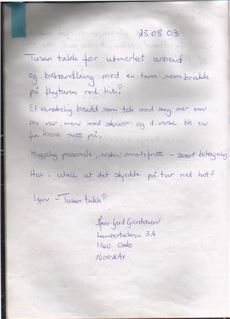 25.08.03
Tusen takk for utmerket arbeid
og behandling med en tann som brakk
på flyturen ned hit!
Et vanskelig brudd som tok med seg mer enn
bra var men med skruer og diverse ble en
fin krone satt på.
Hyggelig personale, smertefritt - svært behagelig
Hell i uhell at det skjedde på tur ned hit!
Igjen - Tusen takk!
Gundersen
3A
1160 Oslo
NORWAY